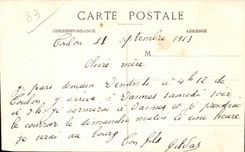 83
CARTE POSTALE
CORRESPONDANCE
ADRESSE
Toulon 11 septembre 1913
M
Chère mère
Je pars demain Vendredi à 4 h 12 de
Toulon j'arrive à Vannes samedi soir
à 7h je dormirai à Vannes et je prendrai
le courrier le dimanche matin à une heure
je serai au bourg
Ton fils Gildas